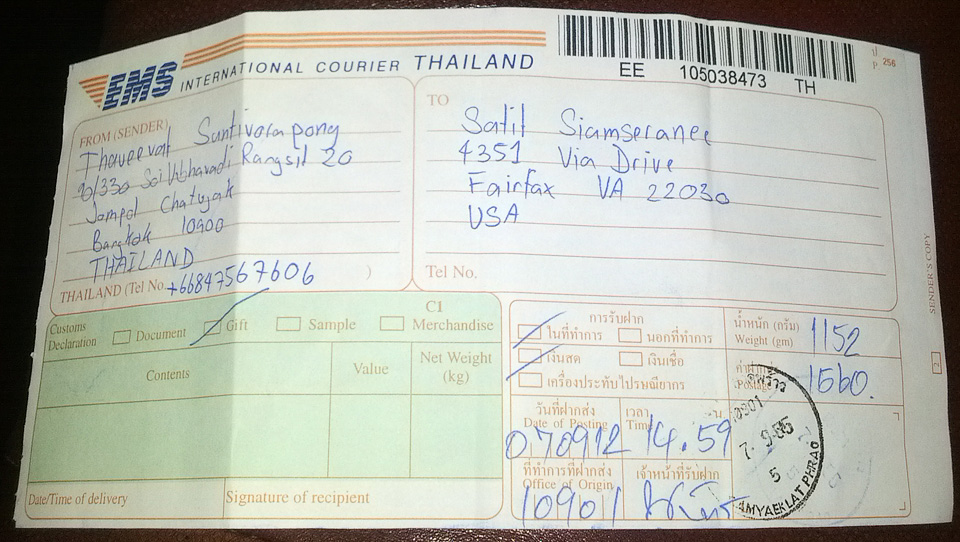 EMS INTERNATIONAL COURIER THAILAND
EE 105038473 TH
FROM (SENDER)
Thaveevat Suntivarapong
90/330 Soi Vibhavadi Rangsit 20
Jompol Chatujak
Bangkok 10900
THAILAND
THAILAND (Tel No. +66847567606 )
TO
Satit Siamseranee
4351 Via Drive
Fairfax VA 22030
USA
Tel No.
SENDER'S COPY
2
Customs Declaration
Document
Gift
Sample
C1
Merchandise
Contents
Value
Net Weight (kg)
Date/Time of delivery
Signature of recipient
การรับฝาก
ในที่ทำการ
นอกที่ทำการ
เงินสด
เงินเชื่อ
เครื่องประทับไปรษณียากร
น้ำหนัก (กรัม)
Weight (gm)
1152
Postage
1560.
วันที่ฝากส่ง
Date of Posting
070912
เวลา
Time
14.59
น.
ที่ทำการที่ฝากส่ง
Office of Origin
10901
เจ้าหน้าที่รับฝาก
7.9.55
5